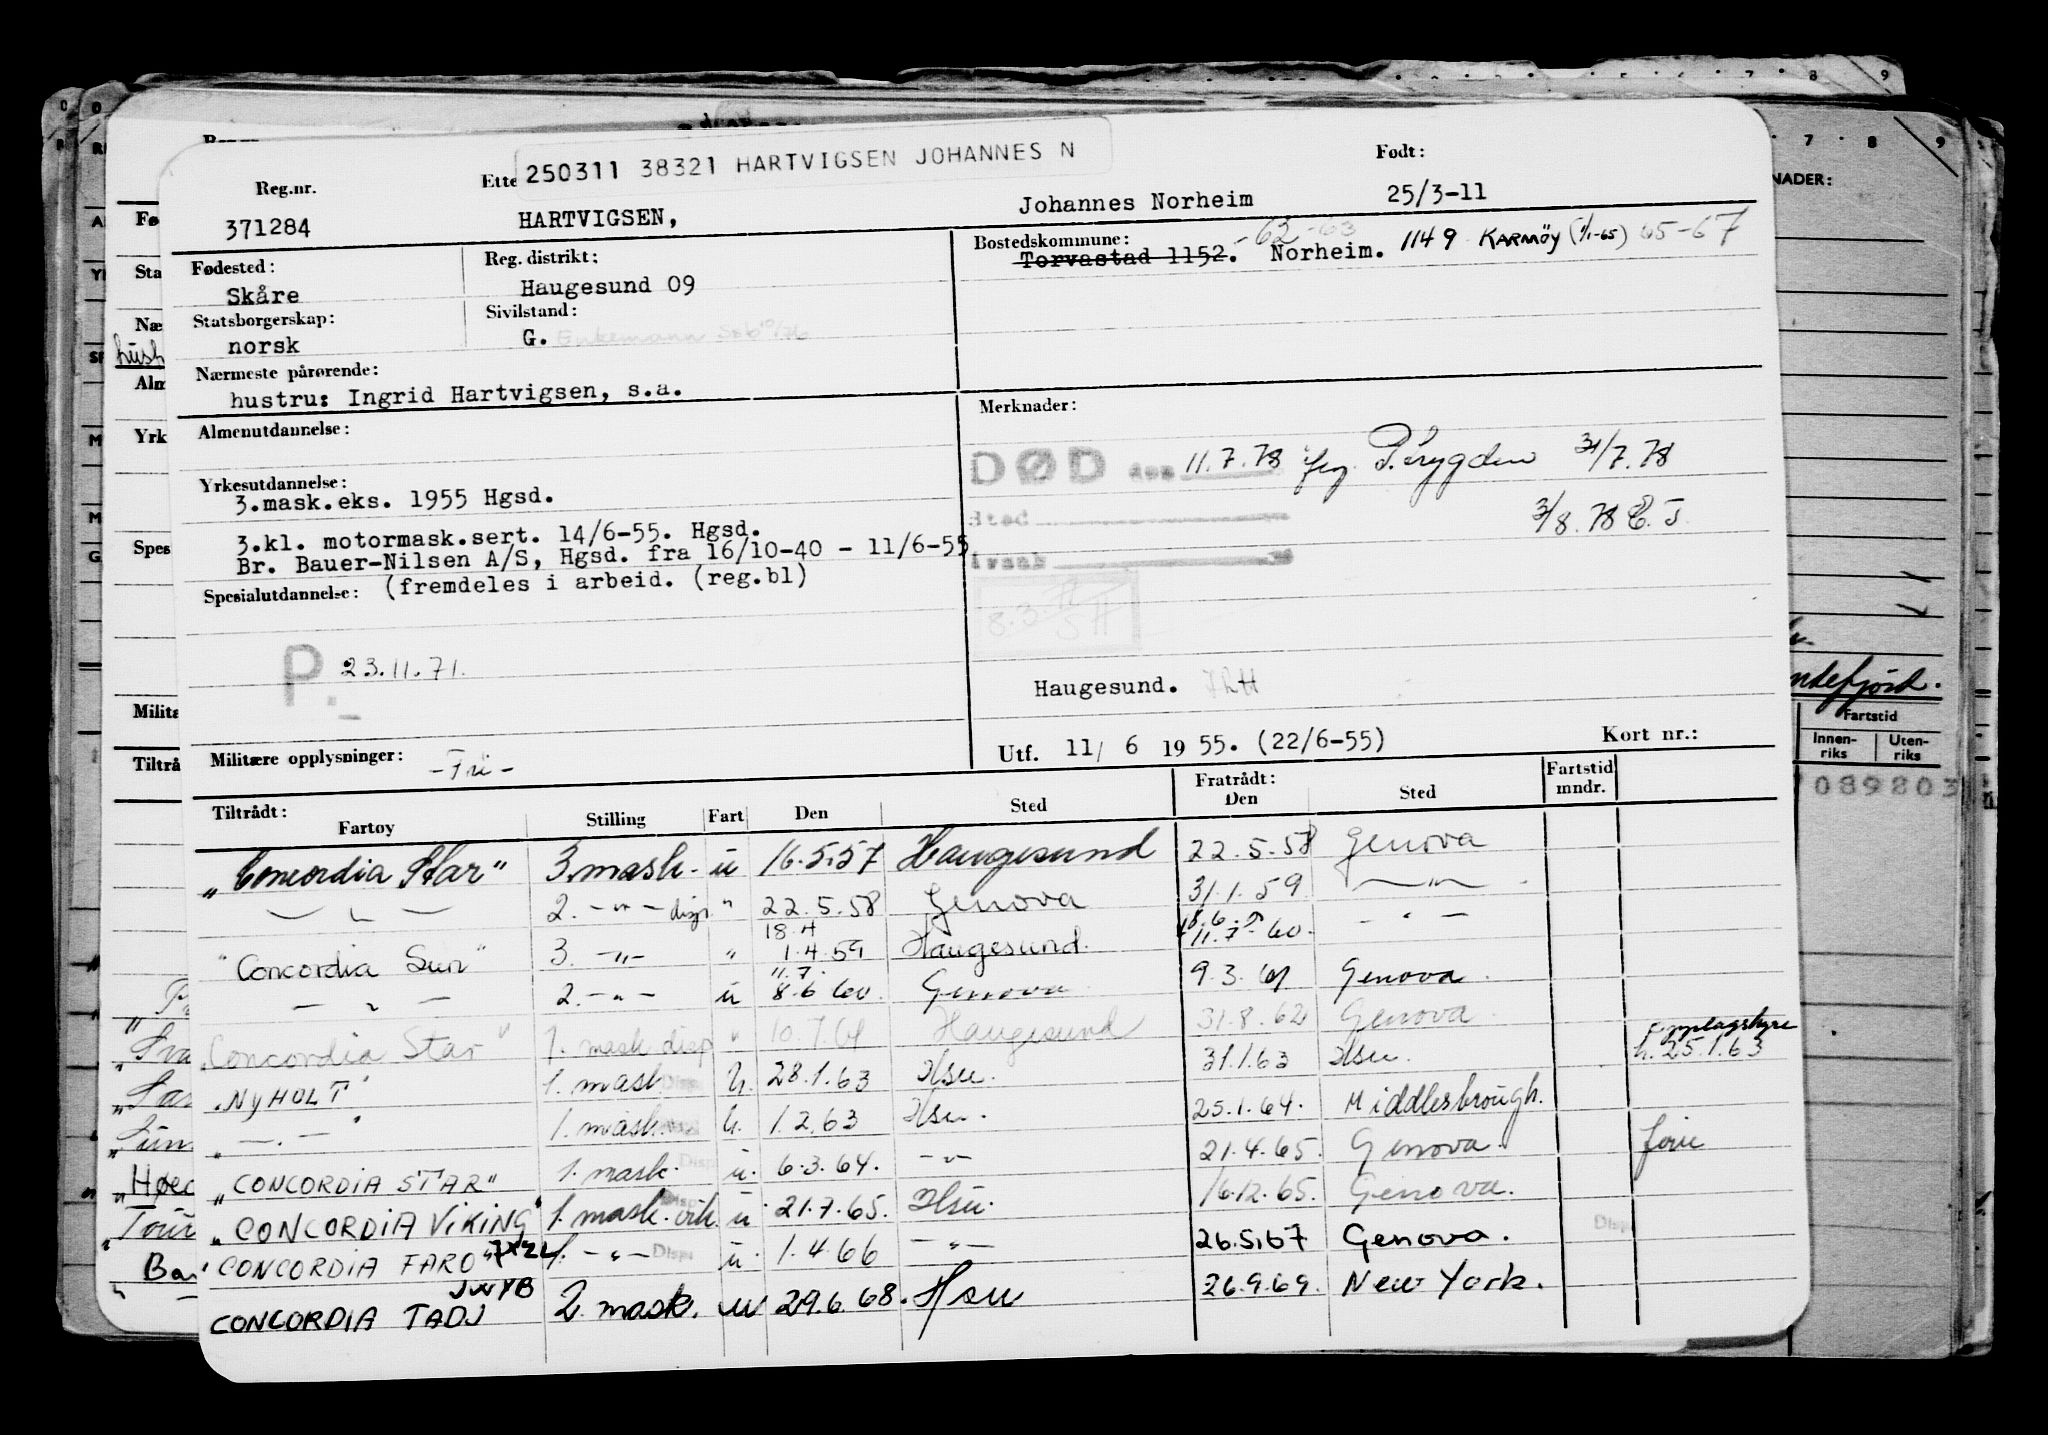 250311 38321 HARTVIGSEN JOHANNES N
Reg.nr. Ette Født:
371284 HARTVIGSEN, Johannes Norheim 25/3-11
Fødested: Reg. distrikt: Bostedskommune: -62-63
Skåre Haugesund 09 Torvastad 1152. Norheim. 1149 KARMÖY (1/1-65) 65-67
Statsborgerskap: Sivilstand:
norsk G. Enkemann
Nærmeste pårørende:
hustru: Ingrid Hartvigsen, s.a.
Almenutdannelse: Merknader:
DØD den 11.7.78 31/7.78
Yrkesutdannelse:
3.mask.eks. 1955 Hgsd.
Sted 3/8.78 E.J.
3.kl. motormask.sert. 14/6-55. Hgsd.
Br. Bauer-Nilsen A/S, Hgsd. fra 16/10-40 - 11/6-55
Spesialutdannelse: (fremdeles i arbeid. (reg.bl)
P. 23.11.71.
Haugesund.
Militære opplysninger: -Fri- Utf. 11/ 6 19 55. (22/6-55) Kort nr.:
Tiltrådt: Fratrådt: Fartstid
Fartøy Stilling Fart Den Sted Den Sted mndr.
"Concordia Star" 3.mask. u 16.5.57 Haugesund 22.5.58 Genova
— " — 2. -"- disp. " 22.5.58 Genova 31.1.59 —"—
18.4
"Concordia Sun" 3. -"- " 1.4.59 Haugesund. 11.7.60. - " -
11.7.
— " — 2. -"- u 8.6 60. Genova 9.3.61 Genova.
Concordia Star" 1. mask disp " 10.7.61 Haugesund 31.8.62 Genova.
"NYHOLT" 1. mask Disp h. 28.1.63 Hsu. 31.1.63 Hsu. h. 25.1.63
"—.—" 1. mask. h. 1.2.63 Hsu. 25.1.64. Middlesbrough.
"CONCORDIA STAR" 1. mask. Disp u. 6.3.64. -"- 21.4.65. Genova. ferie
"CONCORDIA VIKING" 1. mask. vik. u 21.7.65. Hsu. 16.12.65. Genova.
"CONCORDIA FARO" 1. -"- Disp u. 1.4.66 -"- 26.5.67 Genova. Disp
JWYB
CONCORDIA TADJ 2. mask. u 29.6.68. Hsu 26.9.69. New York.
NADER:
ndefjord.
Fartstid
Innen-
riks
Uten-
riks
089803